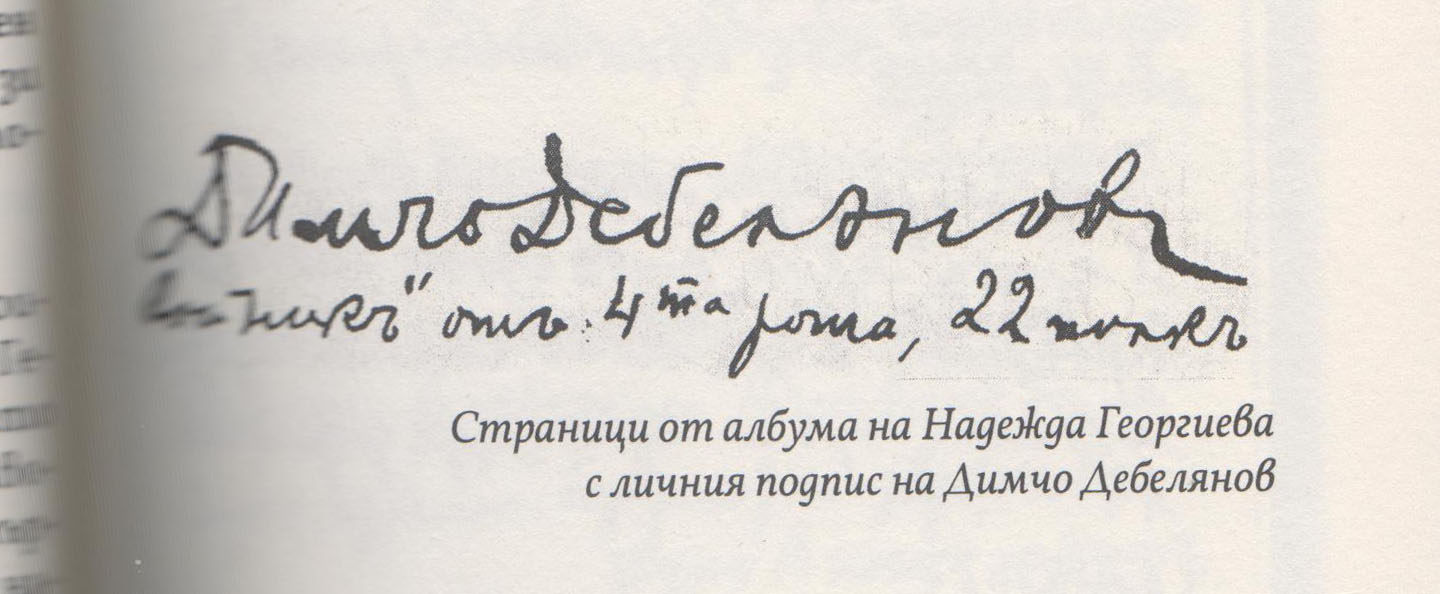 Димчо Дебелянов
отъ 4та рота, 22 полкъ
Страници от албума на Надежда Георгиева
с личния подпис на Димчо Дебелянов